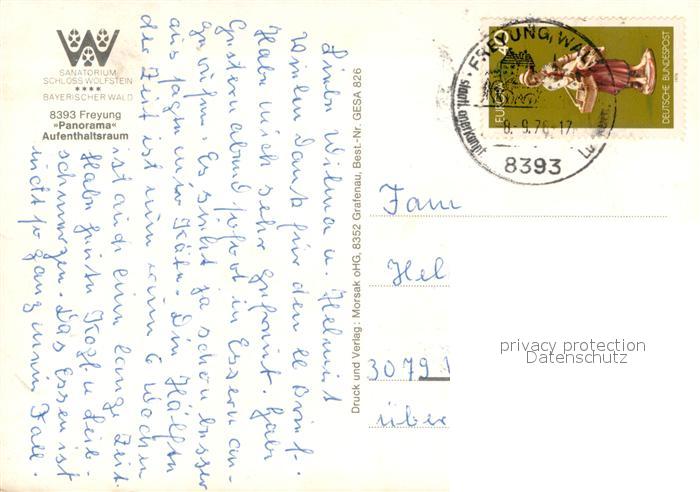 SANATORIUM
SCHLOSS WOLFSTEIN
****
BAYERISCHER WALD
8393 Freyung
»Panorama«
Aufenthaltsraum
Liebe Wilma u. Helmut
Vielen Dank für den lb Brief.
Habe mich sehr gefreut. Habe
Gestern abend sofort in Essern an-
gerufen. Es sieht ja schon besser
aus sagen wir Käte. Die Hälfte
der Zeit ist um wenn 6 Wochen
ist auch eine lange Zeit.
Habe heute Kopf u Leib-
schmerzen. Das Essen ist
nicht so ganz mein Fall.
Druck und Verlag: Morsak oHG, 8352 Grafenau, Best.-Nr. GESA 826
FREYUNG, WA
staatl. anerkannt
8.9.76-17
8393
Lu
EUROPA
DEUTSCHE BUNDESPOST
Fam
Hel
3079
über
privacy protection
Datenschutz